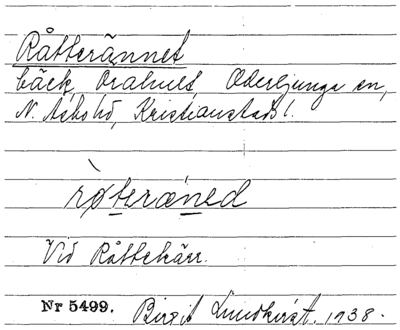 Råtterännet
bäck, Örahult, Oderljunga sn,
N. Åsbo hd, Kristianstads l.
ròteræ̀ned
Vid Råttekärr.
Nr 5499. Birgit Lundkvist. 1938.